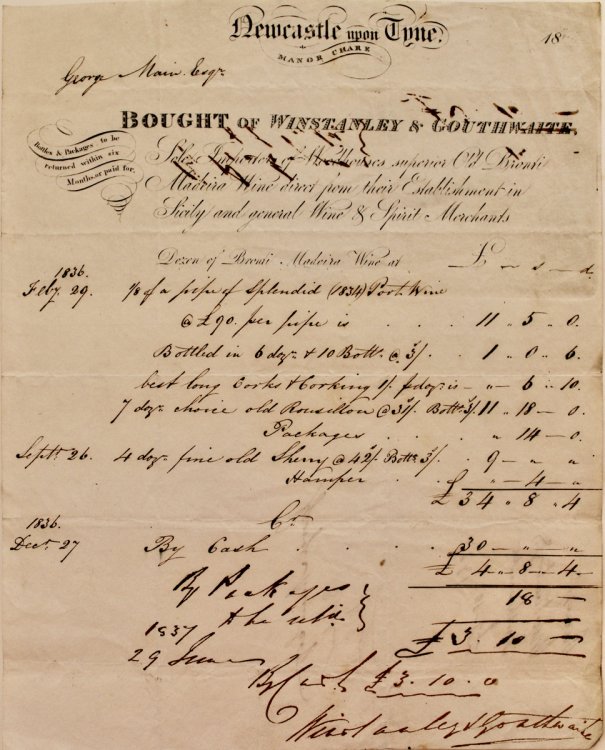 Newcastle upon Tyne. 18
MANOR CHARE
George Main Esqr.
BOUGHT OF WINSTANLEY & GOUTHWAITE,
Bottles & Packages to be
returned within six
Months, or paid for.
Sole Importers of superior Old Bronti
Madeira Wine direct from their Establishment in
Sicily and general Wine & Spirit Merchants
Dozen of Bronti Madeira Wine at £ s d.
1836.
Feby. 29. 1/8 of a pipe of splendid (1834) Port Wine
@ £90. per pipe is . . . 11 " 5 " 0.
Bottled in 6 dozn. & 10 Bott. @ 3/. 1 " 0 " 6.
best long Corks & Corking 1/. pr dozn. is — " — 6 " 10.
7 dozn. choice old Rousillon @ 31/. Botts. 3/. 11 " 18 — 0.
Packages . . . . " 14 — 0.
Septr. 26. 4 dozn. fine old Sherry @ 42/. Botts. 3/. 9 — " "
Hamper . " — 4 — "
£ 34 " 8 " 4
Cr.
1836.
Decr. 27 By Cash . . . . 30 — " — "
£ 4 " — 8 — 4 —
By Packages
18 —
& be retd.
1837 £3. 10 —
29 June
By Cash £3. 10. 0
Winstanley & Gouthwaite